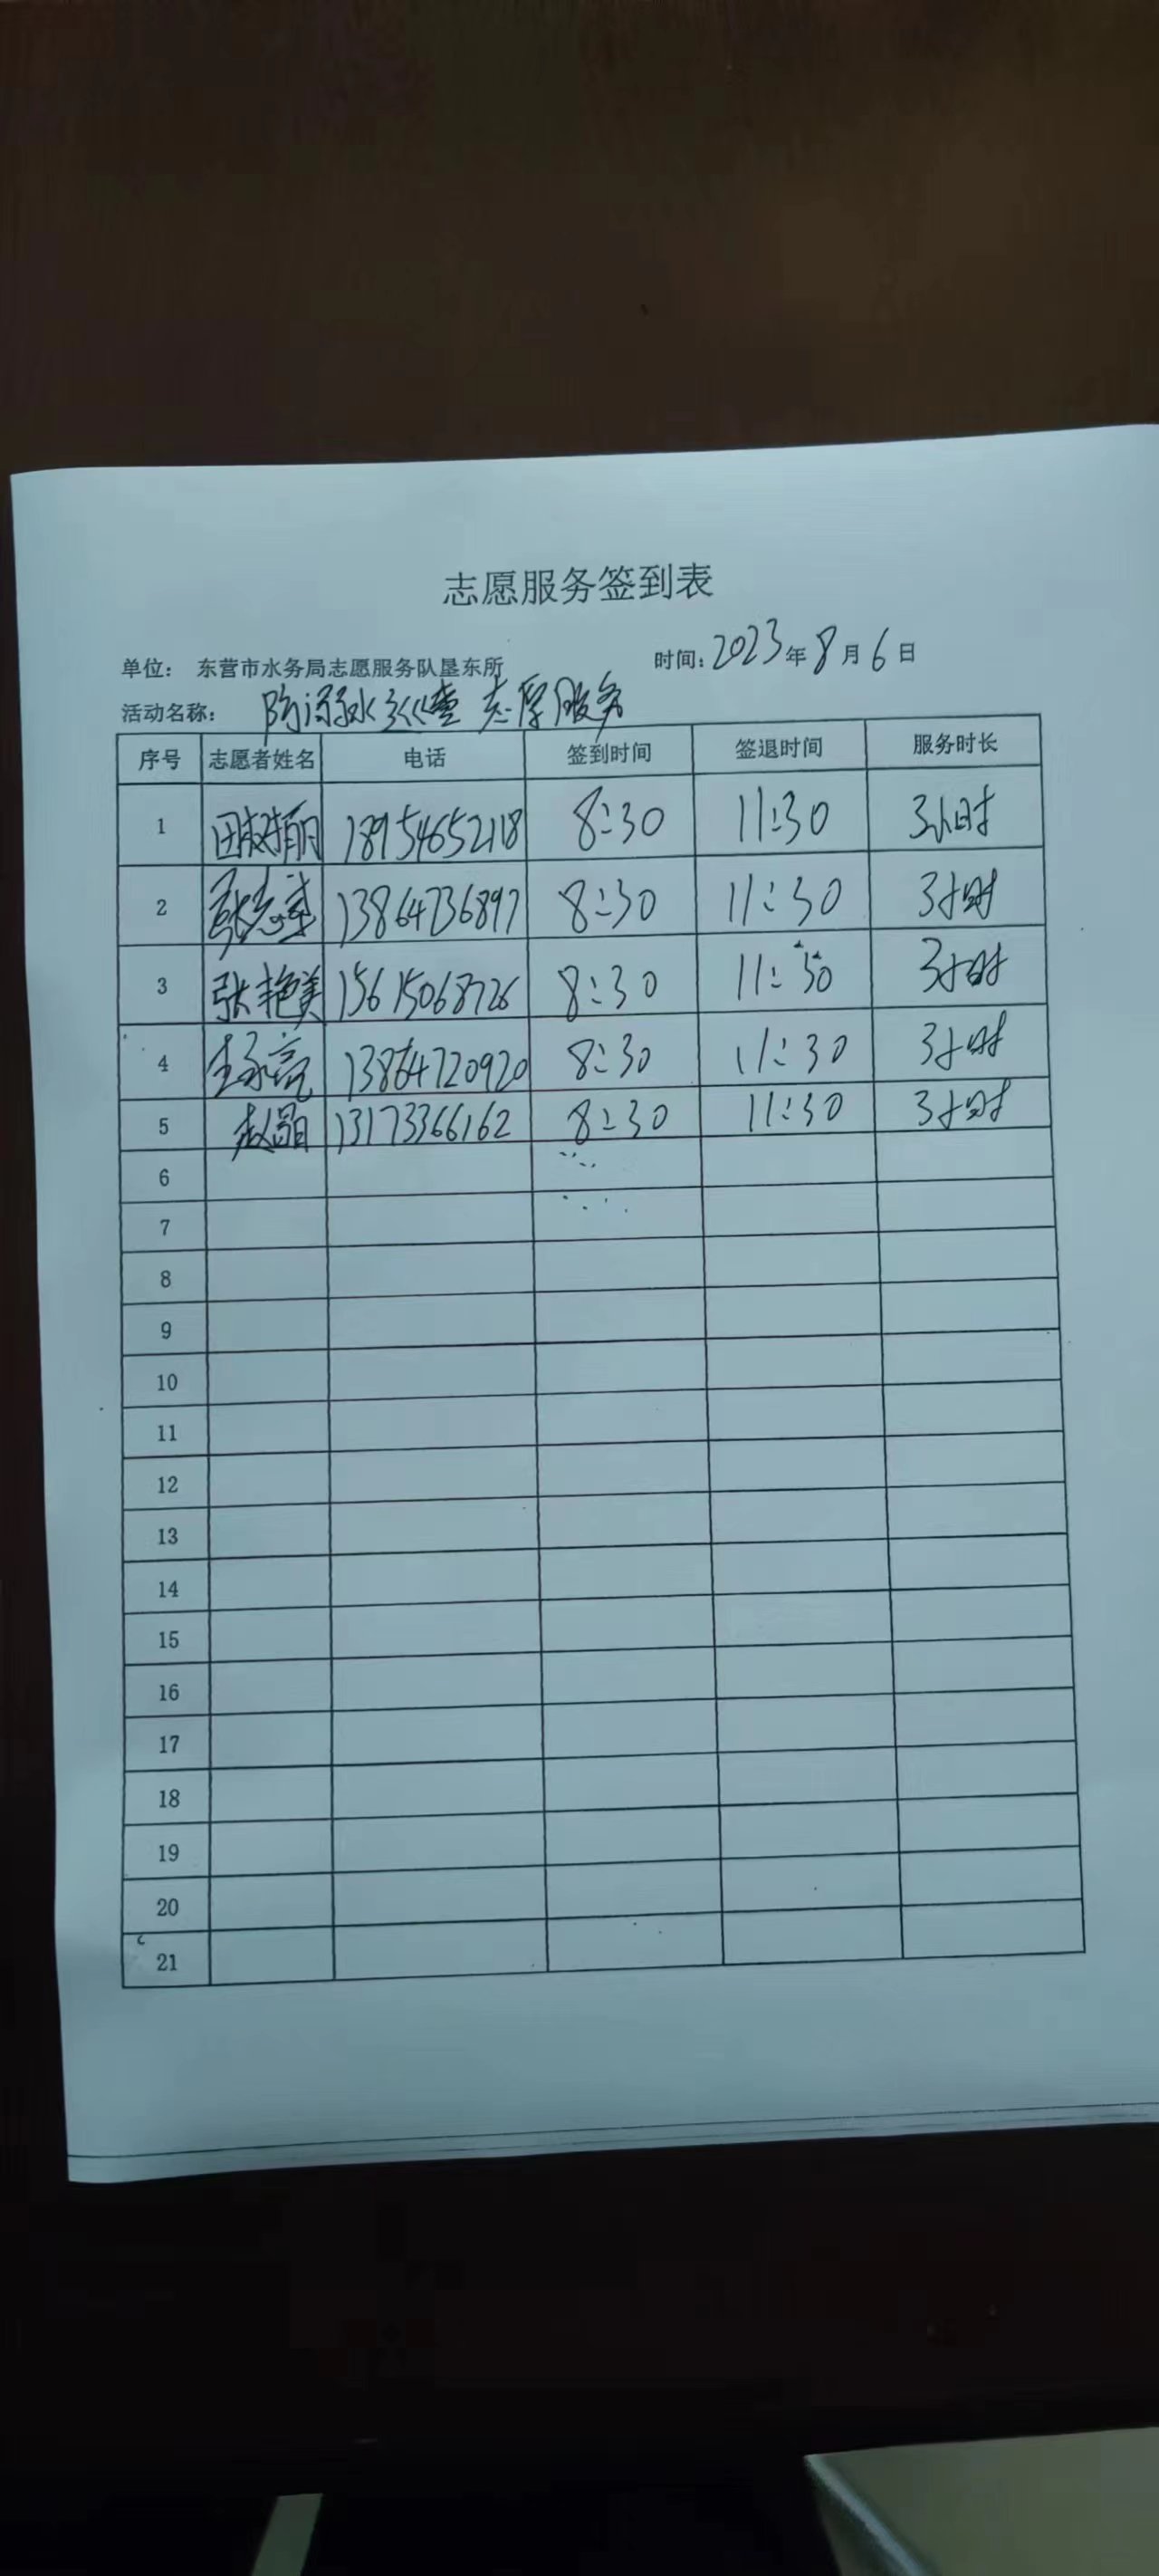 志愿服务签到表
单位： 东营市水务局志愿服务队垦东所 时间：2023年8月6日
活动名称： 防溺水巡查志愿服务
序号 志愿者姓名 电话 签到时间 签退时间 服务时长
1 田淑丽 18954652118 8:30 11:30 3小时
2 张志军 13864736897 8:30 11:30 3小时
3 张艳美 15615068726 8:30 11:30 3小时
4 王永亮 13864720920 8:30 11:30 3小时
5 赵晶 13173366162 8:30 11:30 3小时
6
7
8
9
10
11
12
13
14
15
16
17
18
19
20
21